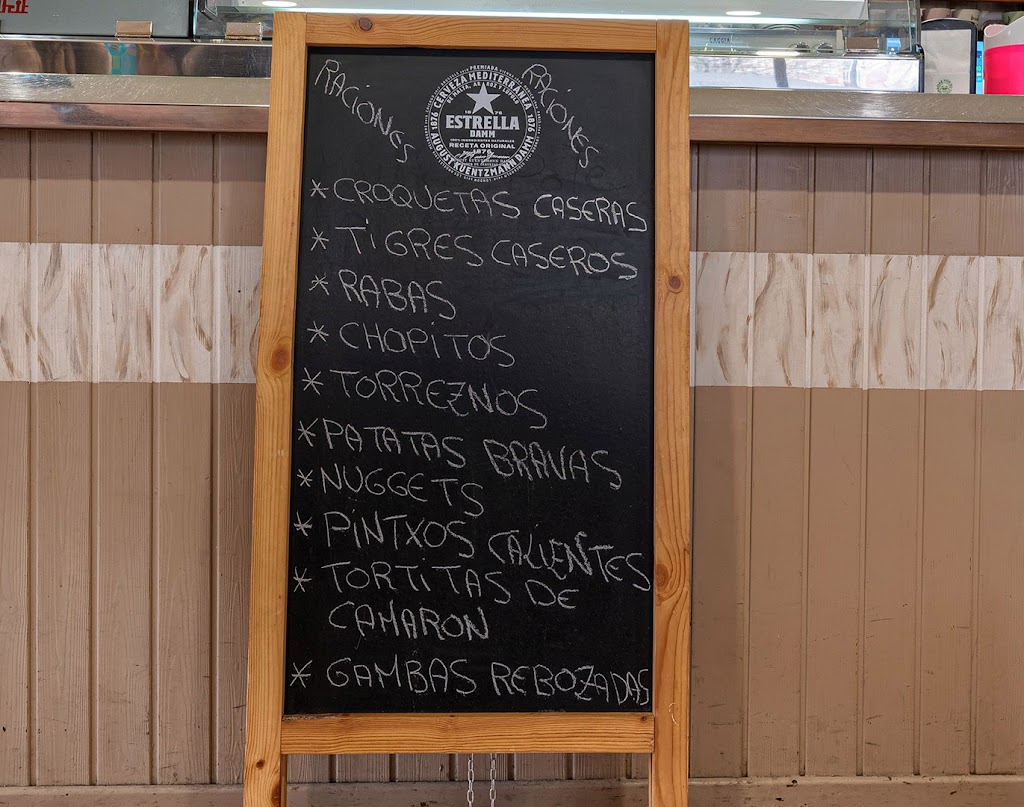 RACIONES
RACIONES
CERVEZA MEDITERRÁNEA
1876
1876
ESTRELLA
DAMM
100% INGREDIENTES NATURALES
RECETA ORIGINAL
1876
AUGUST KUENTZMANN DAMM
* CROQUETAS CASERAS
* TIGRES CASEROS
* RABAS
* CHOPITOS
* TORREZNOS
* PATATAS BRAVAS
* NUGGETS
* PINTXOS CALIENTES
* TORTITAS DE
CAMARON
* GAMBAS REBOZADAS